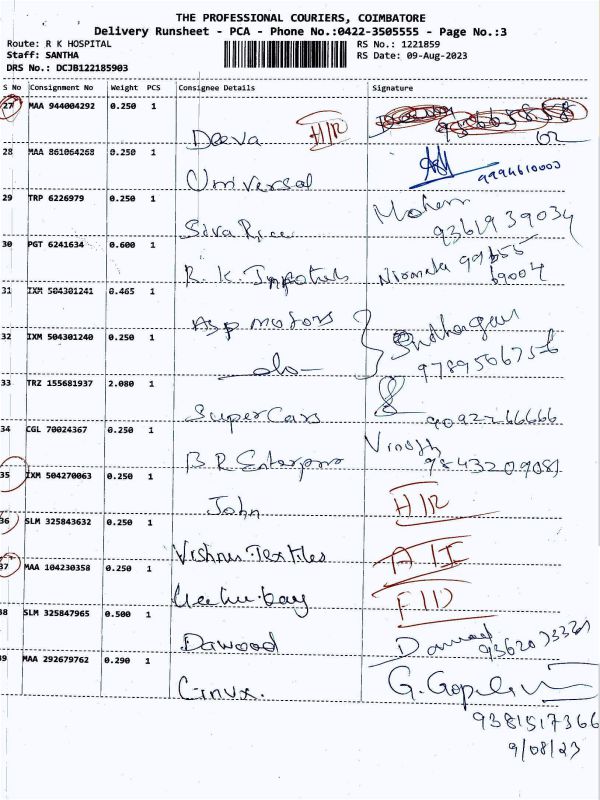 THE PROFESSIONAL COURIERS, COIMBATORE
Delivery Runsheet - PCA - Phone No.:0422-3505555 - Page No.:3
Route: R K HOSPITAL
RS No.: 1221859
Staff: SANTHA
RS Date: 09-Aug-2023
DRS No.: DCJB122185903
S No Consignment No Weight PCS Consignee Details Signature
27 MAA 944004292 0.250 1
Deeva H/R
28 MAA 861064268 0.250 1
Universal 9994610003
29 TRP 6226979 0.250 1
Mohan
9361939034
30 PGT 6241634 0.600 1
R. K. Nirmala
69004
31 IXM 504301241 0.465 1
Asp motors
32 IXM 504301240 0.250 1
-do- 9789506756
33 TRZ 155681937 2.080 1
Super Cars
34 CGL 70024367 0.250 1
B R Enterprise 9843209081
35 IXM 504270063 0.250 1
John H/R
36 SLM 325843632 0.250 1
Vishnu Textiles
37 MAA 104230358 0.250 1
38 SLM 325847965 0.500 1
Dawood Dawood
39 MAA 292679762 0.290 1
9381517366
9/08/23